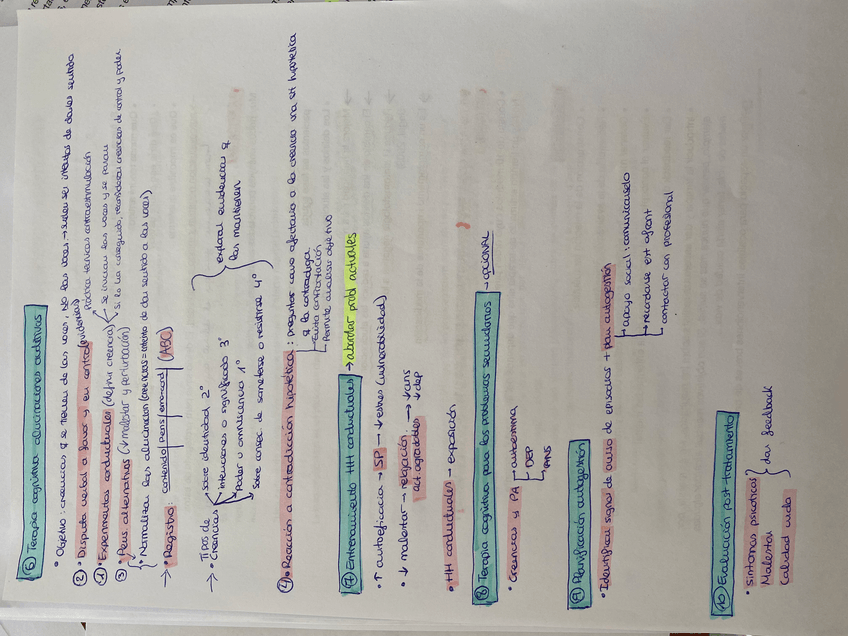 ⑥ Terapia cognitiva alucinaciones auditivas
• Objetivo: creencias q se tienen de las voces, NO las voces → suelen ser intentos de darles sentido
② • Disputa verbal a favor y en contra (evidencias)
practica técnicas contraestimulación
② • Experimentos conductuales (definir creencia)
se inician las voces y se paran
si lo ha conseguido, reconsiderar creencias de control y poder
③ • Pens alternativos (↓ malestar y perturbación)
• Normalizar las alucinación (creencias = intento de dar sentido a las voces)
→ • Registro: contenido | Pens | emo-cond (ABC)
→ • Tipos de creencias
sobre identidad 2º
intenciones o significado 3º
Poder u omnisciencia 1º
Sobre consec. de someterse o resistirse 4º
explorar evidencias q las mantienen
④ • Reacción a contradicción hipotética: preguntar como afectaría a la creencia una sit hipotética q la contradiga
Evita confrontación
Permite analisis objetivo
⑦ Entrenamiento HH conductuales → abordar probl actuales
• ↑ autoeficacia → SP → ↓ estrés (vulnerabilidad)
• ↓ malestar → relajación → ↓ ans
act agradables → ↓ dep
• HH conductuales → exposición
⑧ Terapia cognitiva para los problemas secundarios → OPCIONAL
• Creencias y PA
autoestima
DEP
ANS
⑨ Planificación autogestión
• Identificar signos de aviso de ensayos + plan autogestión
apoyo social: comunicarselo
recordarse est afront
contactar con profesional
⑩ Evaluación post tratamiento
• Sintomas psicoticos
Malestar
Calidad vida
dar feedback